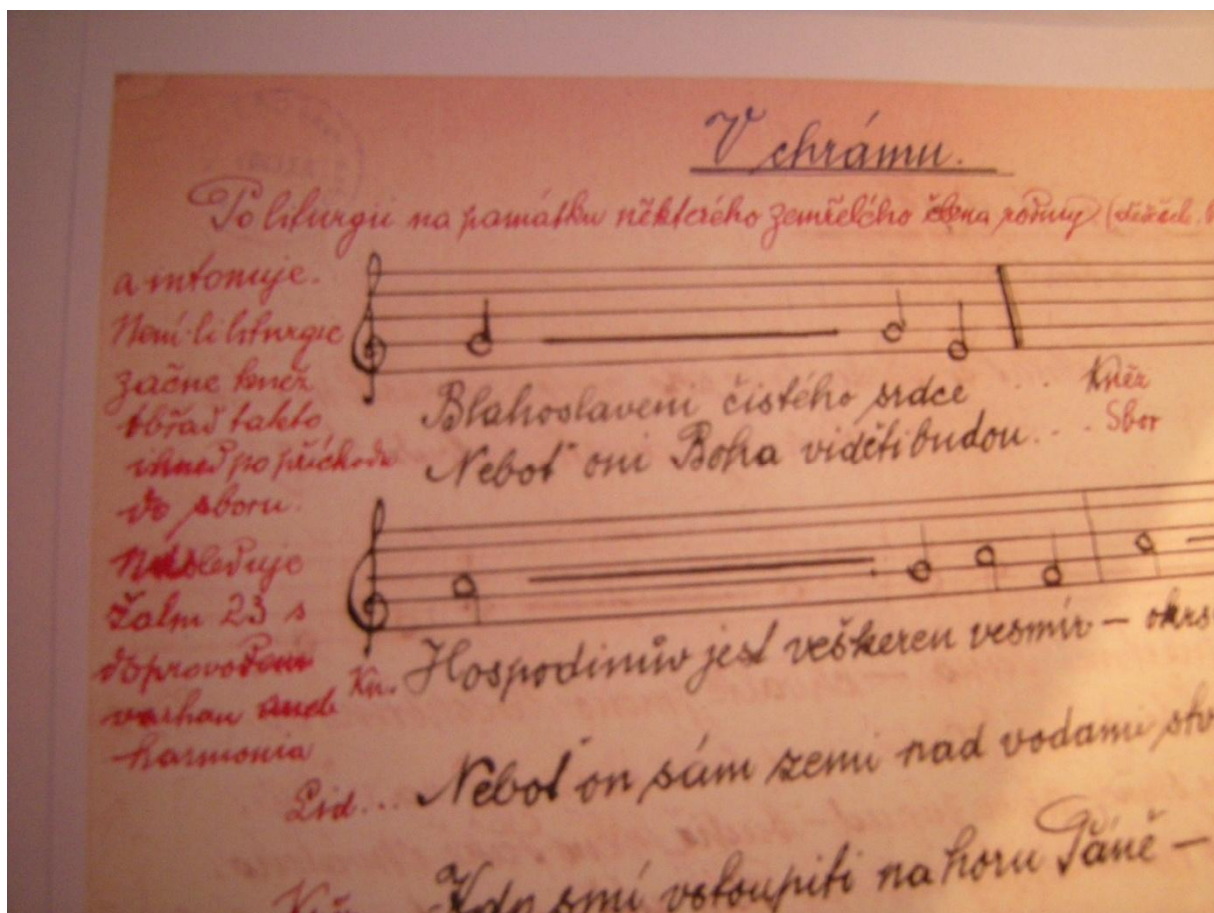 V chrámu.
Po liturgii na památku některého zemřelého člena rodiny
a intonuje.
Není-li liturgie
začne kněz
obřad takto
ihned po příchodu
do sboru.
Následuje
Žalm 23 s
doprovodem
varhan aneb
harmonia
Blahoslaveni čistého srdce ... Kněz
Neboť oni Boha viděti budou ... Sbor
Kn. Hospodinův jest veškeren vesmír – okrs
Lid... Neboť on sám zemi nad vodami stv
Kdo smí vstoupiti na horu Páně –